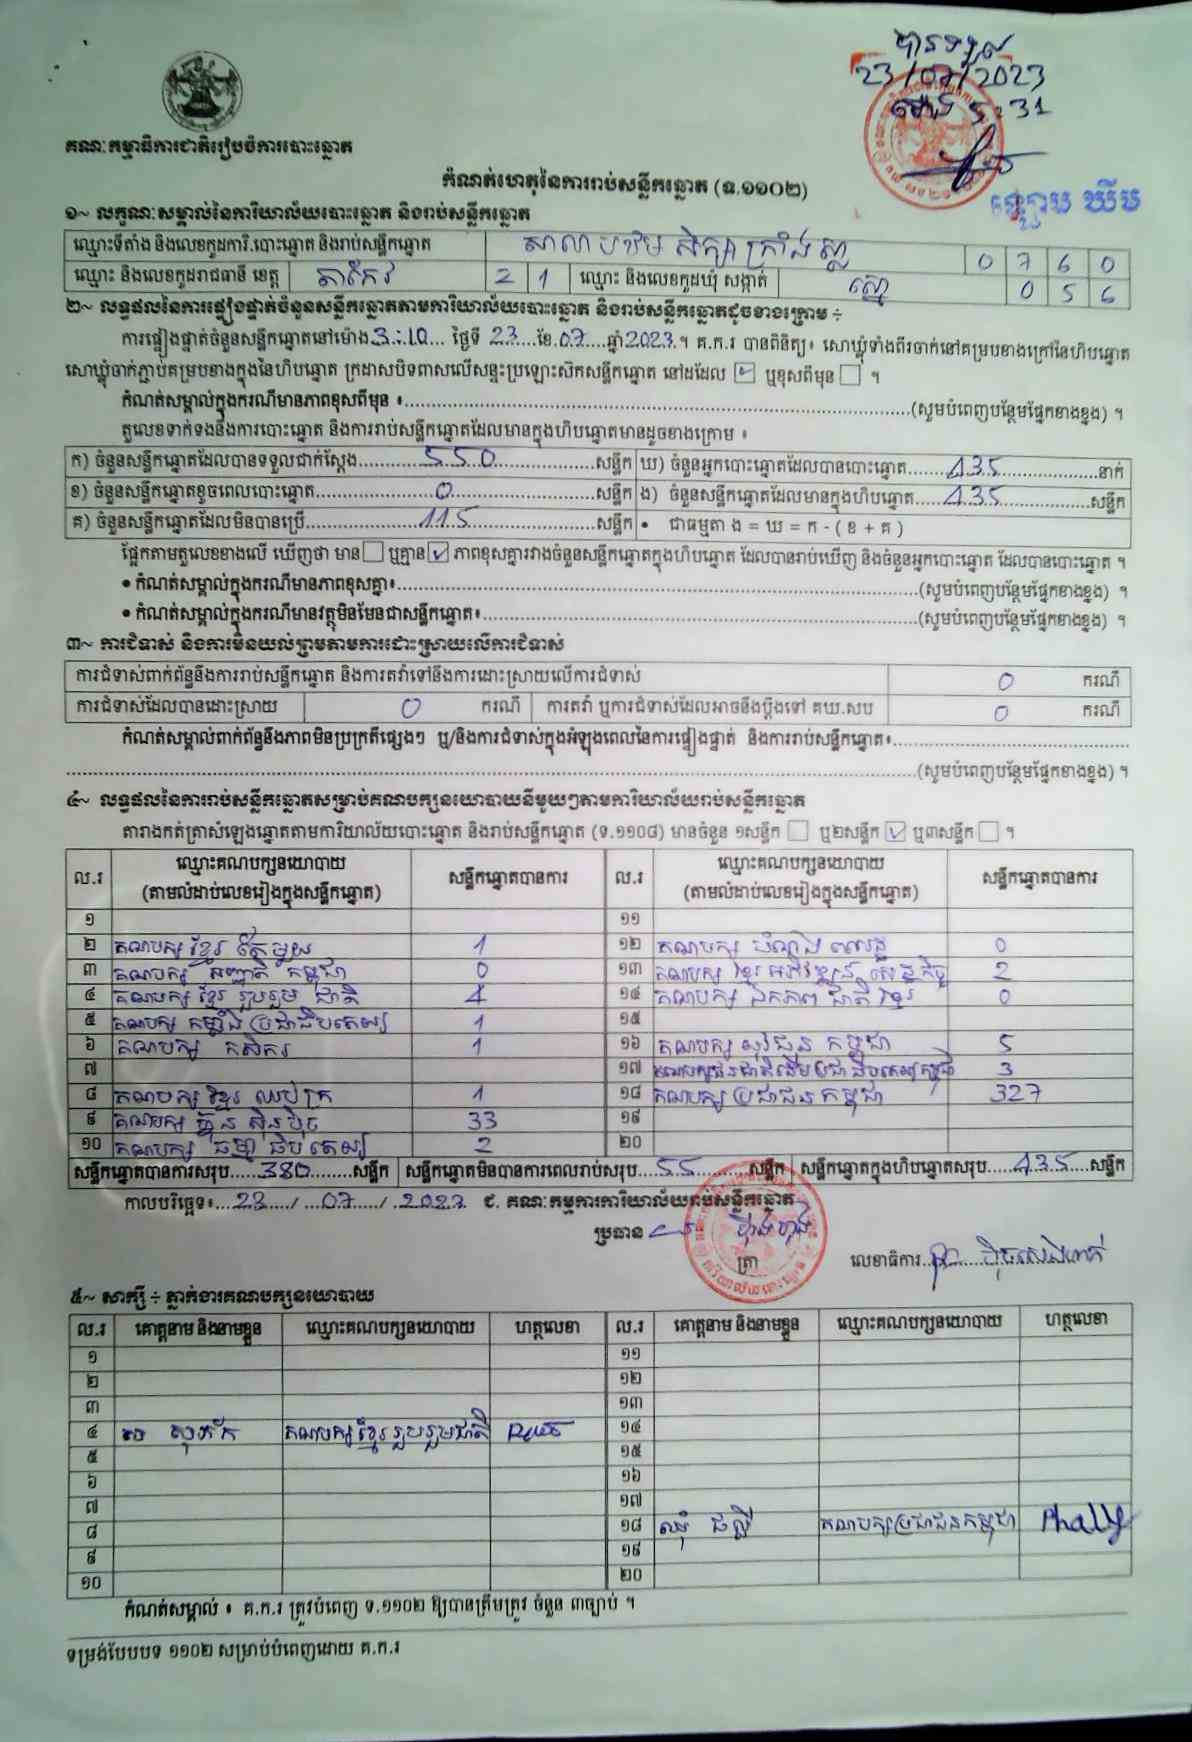 បានទទួល
23/07/2023
ម៉ោង 5:31
គណៈកម្មាធិការជាតិរៀបចំការបោះឆ្នោត
កំណត់ហេតុនៃការរាប់សន្លឹកឆ្នោត (ទ.១១០២)
១~ លក្ខណៈសម្គាល់នៃការិយាល័យបោះឆ្នោត និងរាប់សន្លឹកឆ្នោត
ឈ្មោះទីតាំង និងលេខកូដការិ.បោះឆ្នោត និងរាប់សន្លឹកឆ្នោត សាលាបឋមសិក្សា 0 7 6 0
ឈ្មោះ និងលេខកូដរាជធានី ខេត្ត តាកែវ 2 1 ឈ្មោះ និងលេខកូដឃុំ សង្កាត់ 0 5 6
២~ លទ្ធផលនៃការផ្ទៀងផ្ទាត់ចំនួនសន្លឹកឆ្នោតតាមការិយាល័យបោះឆ្នោត និងរាប់សន្លឹកឆ្នោតដូចខាងក្រោម ÷
ការផ្ទៀងផ្ទាត់ចំនួនសន្លឹកឆ្នោតនៅម៉ោង 3:10 ថ្ងៃទី 23 ខែ 07 ឆ្នាំ 2023 ។ គ.ក.រ បានពិនិត្យ៖ សោឃ្លុំទាំងពីរចាក់នៅគម្របខាងក្រៅនៃហិបឆ្នោត
សោឃ្លុំចាក់ភ្ជាប់គម្របខាងក្នុងនៃហិបឆ្នោត ក្រដាសបិទពាសលើសន្ទះប្រឡោះស៊កសន្លឹកឆ្នោត នៅដដែល ☑ ឬខុសពីមុន ☐ ។
កំណត់សម្គាល់ក្នុងករណីមានភាពខុសពីមុន ៖ (សូមបំពេញបន្ថែមផ្នែកខាងខ្នង) ។
តួលេខទាក់ទងនឹងការបោះឆ្នោត និងការរាប់សន្លឹកឆ្នោតដែលមានក្នុងហិបឆ្នោតមានដូចខាងក្រោម ៖
ក) ចំនួនសន្លឹកឆ្នោតដែលបានទទួលជាក់ស្តែង 550 សន្លឹក ឃ) ចំនួនអ្នកបោះឆ្នោតដែលបានបោះឆ្នោត 435 នាក់
ខ) ចំនួនសន្លឹកឆ្នោតខូចពេលបោះឆ្នោត 0 សន្លឹក ង) ចំនួនសន្លឹកឆ្នោតដែលមានក្នុងហិបឆ្នោត 435 សន្លឹក
គ) ចំនួនសន្លឹកឆ្នោតដែលមិនបានប្រើ 115 សន្លឹក • ជាធម្មតា ង = ឃ = ក - ( ខ + គ )
ផ្អែកតាមតួលេខខាងលើ ឃើញថា មាន ☐ ឬគ្មាន ☑ ភាពខុសគ្នារវាងចំនួនសន្លឹកឆ្នោតក្នុងហិបឆ្នោត ដែលបានរាប់ឃើញ និងចំនួនអ្នកបោះឆ្នោត ដែលបានបោះឆ្នោត ។
• កំណត់សម្គាល់ក្នុងករណីមានភាពខុសគ្នា៖ (សូមបំពេញបន្ថែមផ្នែកខាងខ្នង) ។
• កំណត់សម្គាល់ក្នុងករណីមានវត្ថុមិនមែនជាសន្លឹកឆ្នោត៖ (សូមបំពេញបន្ថែមផ្នែកខាងខ្នង) ។
៣~ ការជំទាស់ និងការមិនយល់ព្រមតាមការដោះស្រាយលើការជំទាស់
ការជំទាស់ពាក់ព័ន្ធនឹងការរាប់សន្លឹកឆ្នោត និងការតវ៉ាទៅនឹងការដោះស្រាយលើការជំទាស់ 0 ករណី
ការជំទាស់ដែលបានដោះស្រាយ 0 ករណី ការតវ៉ា ឬការជំទាស់ដែលអាចនឹងប្តឹងទៅ គឃ.សប 0 ករណី
កំណត់សម្គាល់ពាក់ព័ន្ធនឹងភាពមិនប្រក្រតីផ្សេងៗ ឬ/និងការជំទាស់ក្នុងអំឡុងពេលនៃការផ្ទៀងផ្ទាត់ និងការរាប់សន្លឹកឆ្នោត៖
(សូមបំពេញបន្ថែមផ្នែកខាងខ្នង) ។
៤~ លទ្ធផលនៃការរាប់សន្លឹកឆ្នោតសម្រាប់គណបក្សនយោបាយនីមួយៗតាមការិយាល័យរាប់សន្លឹកឆ្នោត
តារាងកត់ត្រាសំឡេងឆ្នោតតាមការិយាល័យបោះឆ្នោត និងរាប់សន្លឹកឆ្នោត (ទ.១១០៨) មានចំនួន ១សន្លឹក ☐ ឬ២សន្លឹក ☑ ឬ៣សន្លឹក ☐ ។
ល.រ ឈ្មោះគណបក្សនយោបាយ (តាមលំដាប់លេខរៀងក្នុងសន្លឹកឆ្នោត) សន្លឹកឆ្នោតបានការ ល.រ ឈ្មោះគណបក្សនយោបាយ (តាមលំដាប់លេខរៀងក្នុងសន្លឹកឆ្នោត) សន្លឹកឆ្នោតបានការ
១ ១១
២ គណបក្ស ខ្មែរ តែមួយ 1 ១២ គណបក្ស 0
៣ គណបក្ស កម្ពុជា 0 ១៣ គណបក្ស ខ្មែរ អភិវឌ្ឍន៍ សេដ្ឋកិច្ច 2
៤ គណបក្ស ខ្មែរ រួបរួម ជាតិ 4 ១៤ គណបក្ស ឯកភាព ជាតិ ខ្មែរ 0
៥ គណបក្ស កម្លាំង ប្រជាធិបតេយ្យ 1 ១៥
៦ គណបក្ស កសិករ 1 ១៦ គណបក្ស យុវជន កម្ពុជា 5
៧ ១៧ គណបក្សជនជាតិដើមប្រជាធិបតេយ្យកម្ពុជា 3
៨ គណបក្ស ខ្មែរ ឈប់ក្រ 1 ១៨ គណបក្ស ប្រជាជន កម្ពុជា 327
៩ គណបក្ស ហ៊្វុនស៊ិនប៉ិច 33 ១៩
១០ គណបក្ស ធម្មាធិបតេយ្យ 2 ២០
សន្លឹកឆ្នោតបានការសរុប 380 សន្លឹក សន្លឹកឆ្នោតមិនបានការពេលរាប់សរុប 55 សន្លឹក សន្លឹកឆ្នោតក្នុងហិបឆ្នោតសរុប 435 សន្លឹក
កាលបរិច្ឆេទ៖ 23 / 07 / 2023 ជ. គណៈកម្មការការិយាល័យរាប់សន្លឹកឆ្នោត
ប្រធាន
ត្រា លេខាធិការ
៥~ សាក្សី ÷ ភ្នាក់ងារគណបក្សនយោបាយ
ល.រ គោត្តនាម និងនាមខ្លួន ឈ្មោះគណបក្សនយោបាយ ហត្ថលេខា ល.រ គោត្តនាម និងនាមខ្លួន ឈ្មោះគណបក្សនយោបាយ ហត្ថលេខា
១ ១១
២ ១២
៣ ១៣
៤ គណបក្សខ្មែររួបរួមជាតិ ១៤
៥ ១៥
៦ ១៦
៧ ១៧
៨ ១៨ ផល្លី គណបក្សប្រជាជនកម្ពុជា Phally
៩ ១៩
១០ ២០
កំណត់សម្គាល់ ៖ គ.ក.រ ត្រូវបំពេញ ទ.១១០២ ឱ្យបានត្រឹមត្រូវ ចំនួន ៣ច្បាប់ ។
ទម្រង់បែបបទ ១១០២ សម្រាប់បំពេញដោយ គ.ក.រ